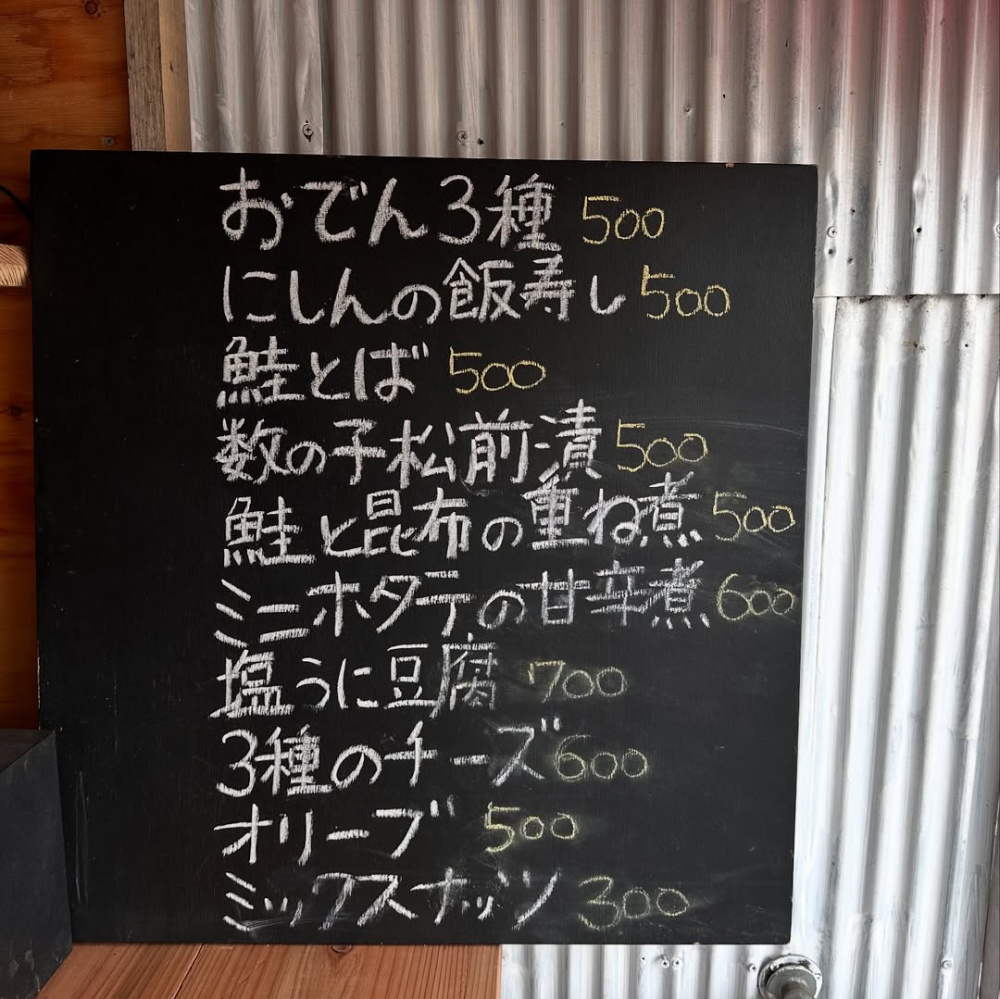 おでん3種 500
にしんの飯寿し 500
鮭とば 500
数の子松前漬 500
鮭と昆布の重ね煮 500
ミニホタテの甘辛煮 600
塩うに豆腐 700
3種のチーズ 600
オリーブ 500
ミックスナッツ 300